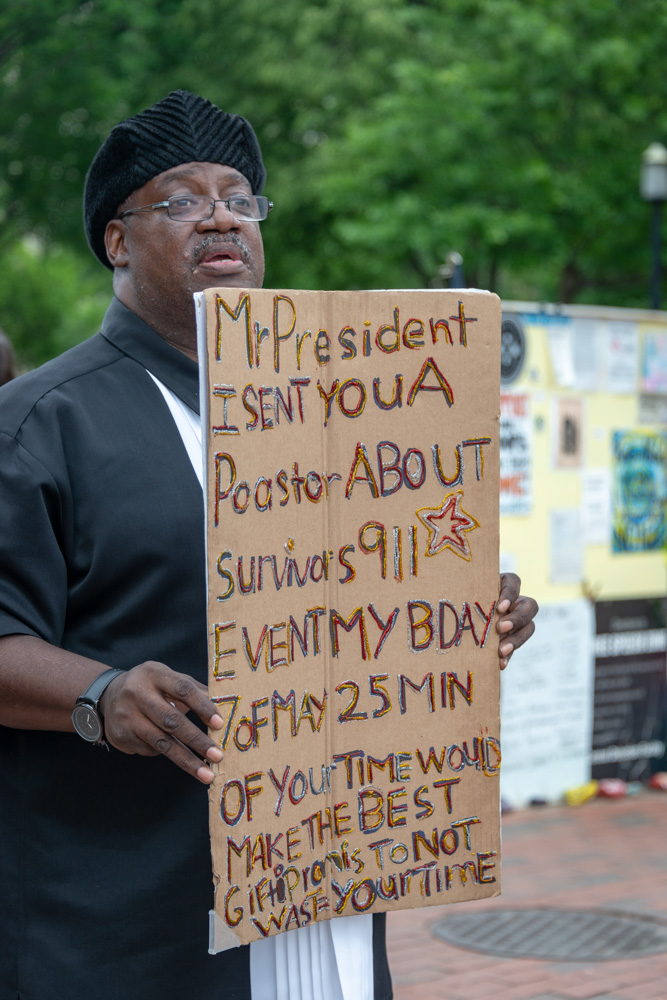 MrPresident
I SENT YOU A
Poastor ABOUT
survivors 911
EVENT MY BDAY
7 OF MAY 25 MIN
OF YOUR TIME WOULD
MAKE THE BEST
Gift i promis TO NOT
WASTE YOUR TIME